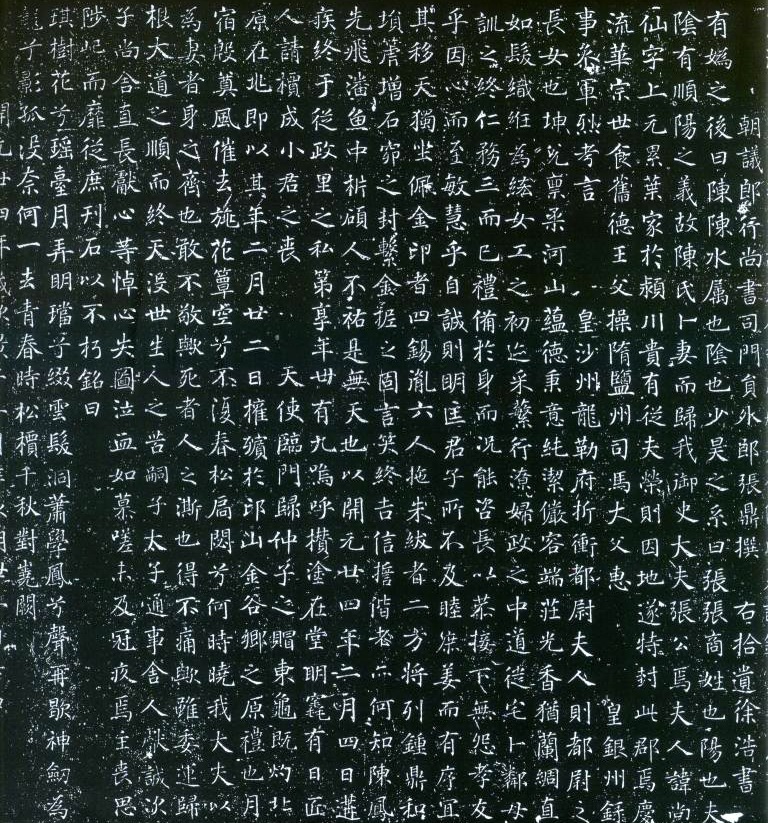 朝議郎行尚書司門員外郎張鼎撰 右拾遺徐浩書
有媯之後曰陳陳水屬也陰也少昊之系曰張張商姓也陽也夫
陰有順陽之義故陳氏卜妻而歸我御史大夫張公焉夫人諱尚
仙字上元累葉家於潁川貴有從夫榮則因地遂特封此郡焉慶
流華宗世食舊德王父操隋鹽州司馬大父惠 皇銀州錄
事參軍烈考言 皇沙州龍勒府折衝都尉夫人則都尉之
長女也坤兌稟柔河山蘊德秉意純潔儼容端莊光香猶蘭綢直
如髮織紝為絺女工之初迄采蘩行潦婦政之中道徙宅卜鄰母
訓之終仁務三而已禮備於身而況能咨長以恭接下無怨孝友
乎因心而至敏慧乎自誠則明匡君子所不及睦庶姜而有序宜
其移天獨坐佩金印者四錫胤六人拖朱紱者二方將列鍾鼎和
塤篪增石窌之封繫金柅之固言笑終吉信誓偕老亦何知陳鳳
先飛潘魚中析碩人不祐是無天也以開元廿四年二月四日遘
疾終于從政里之私第享年卌有九嗚呼攢塗在堂明窀有日匠
人請櫝成小君之喪 天使臨門歸仲子之賵東龜既灼北
原在兆即以其年二月廿二日權殯於邙山金谷鄉之原禮也月
宿殷奠風催去旐花簟空兮不復春松扃閟兮何時曉我大夫以
為妻者身之齊也敢不敬歟死者人之澌也得不痛歟雖委運歸
根大道之順而終天沒世生人之苦嗣子太子通事舍人獻誠次
子尚含直長獻心等悼心失圖泣血如慕嗟未及冠疚焉主喪思
陟屺而靡從庶刊石以不朽銘曰
琪樹花兮瑶臺月弄明璫兮綴雲髮洞蕭學鳳兮聲再歇神劒為
龍兮影孤没奈何一去青春時松檟千秋對嵩闕
開元廿四年歲次